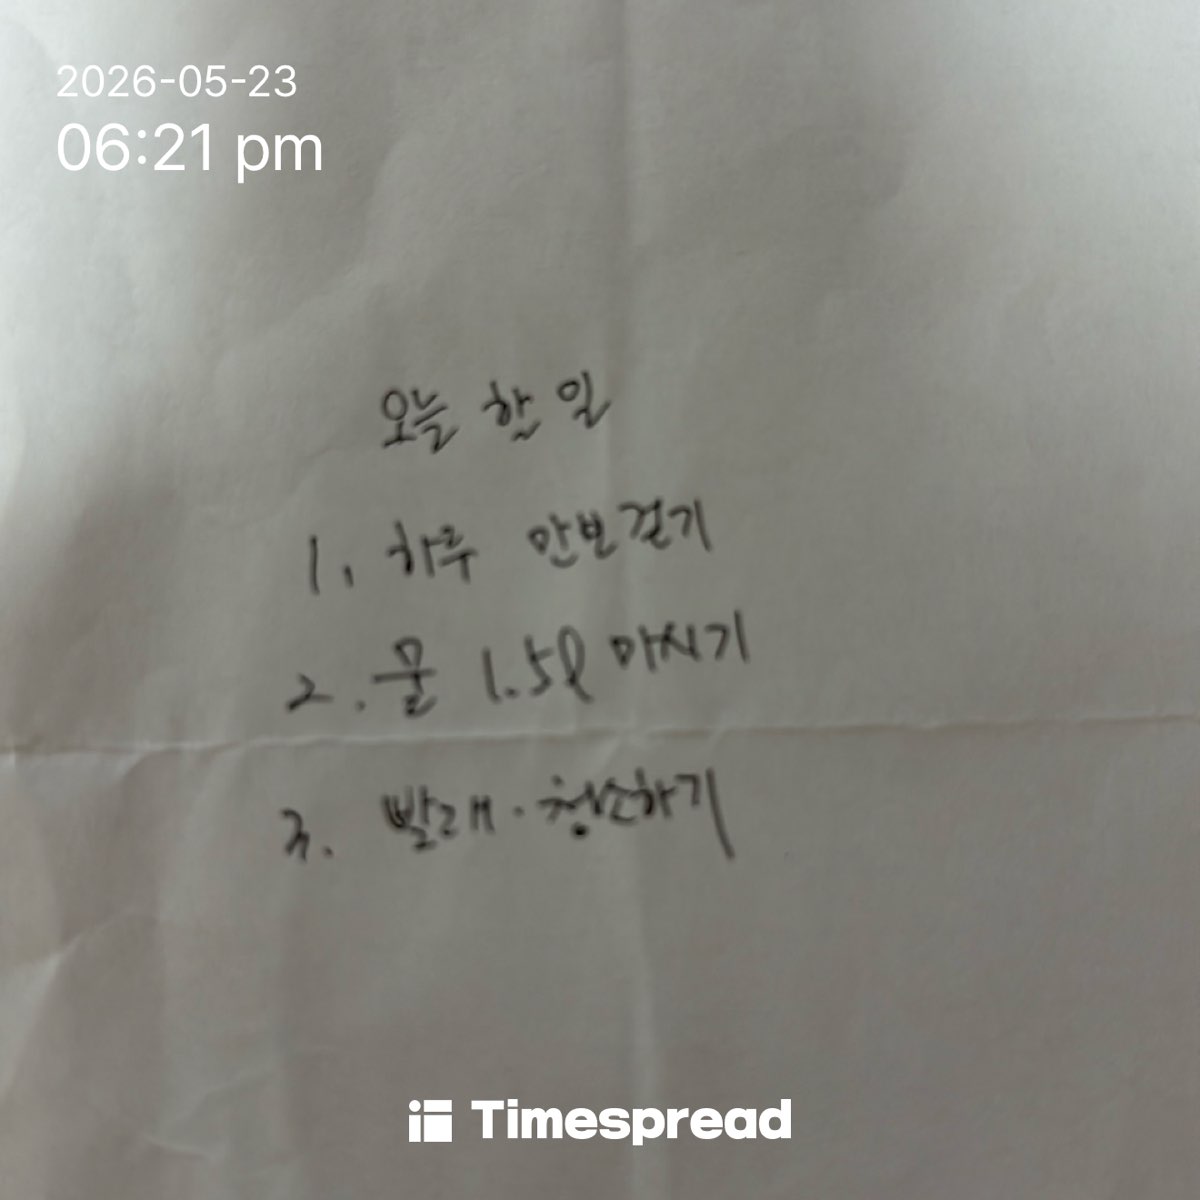 2026-05-23
06:21 pm
오늘 한 일
1. 하루 만보걷기
2. 물 1.5l 마시기
3. 빨래·청소하기
Timespread